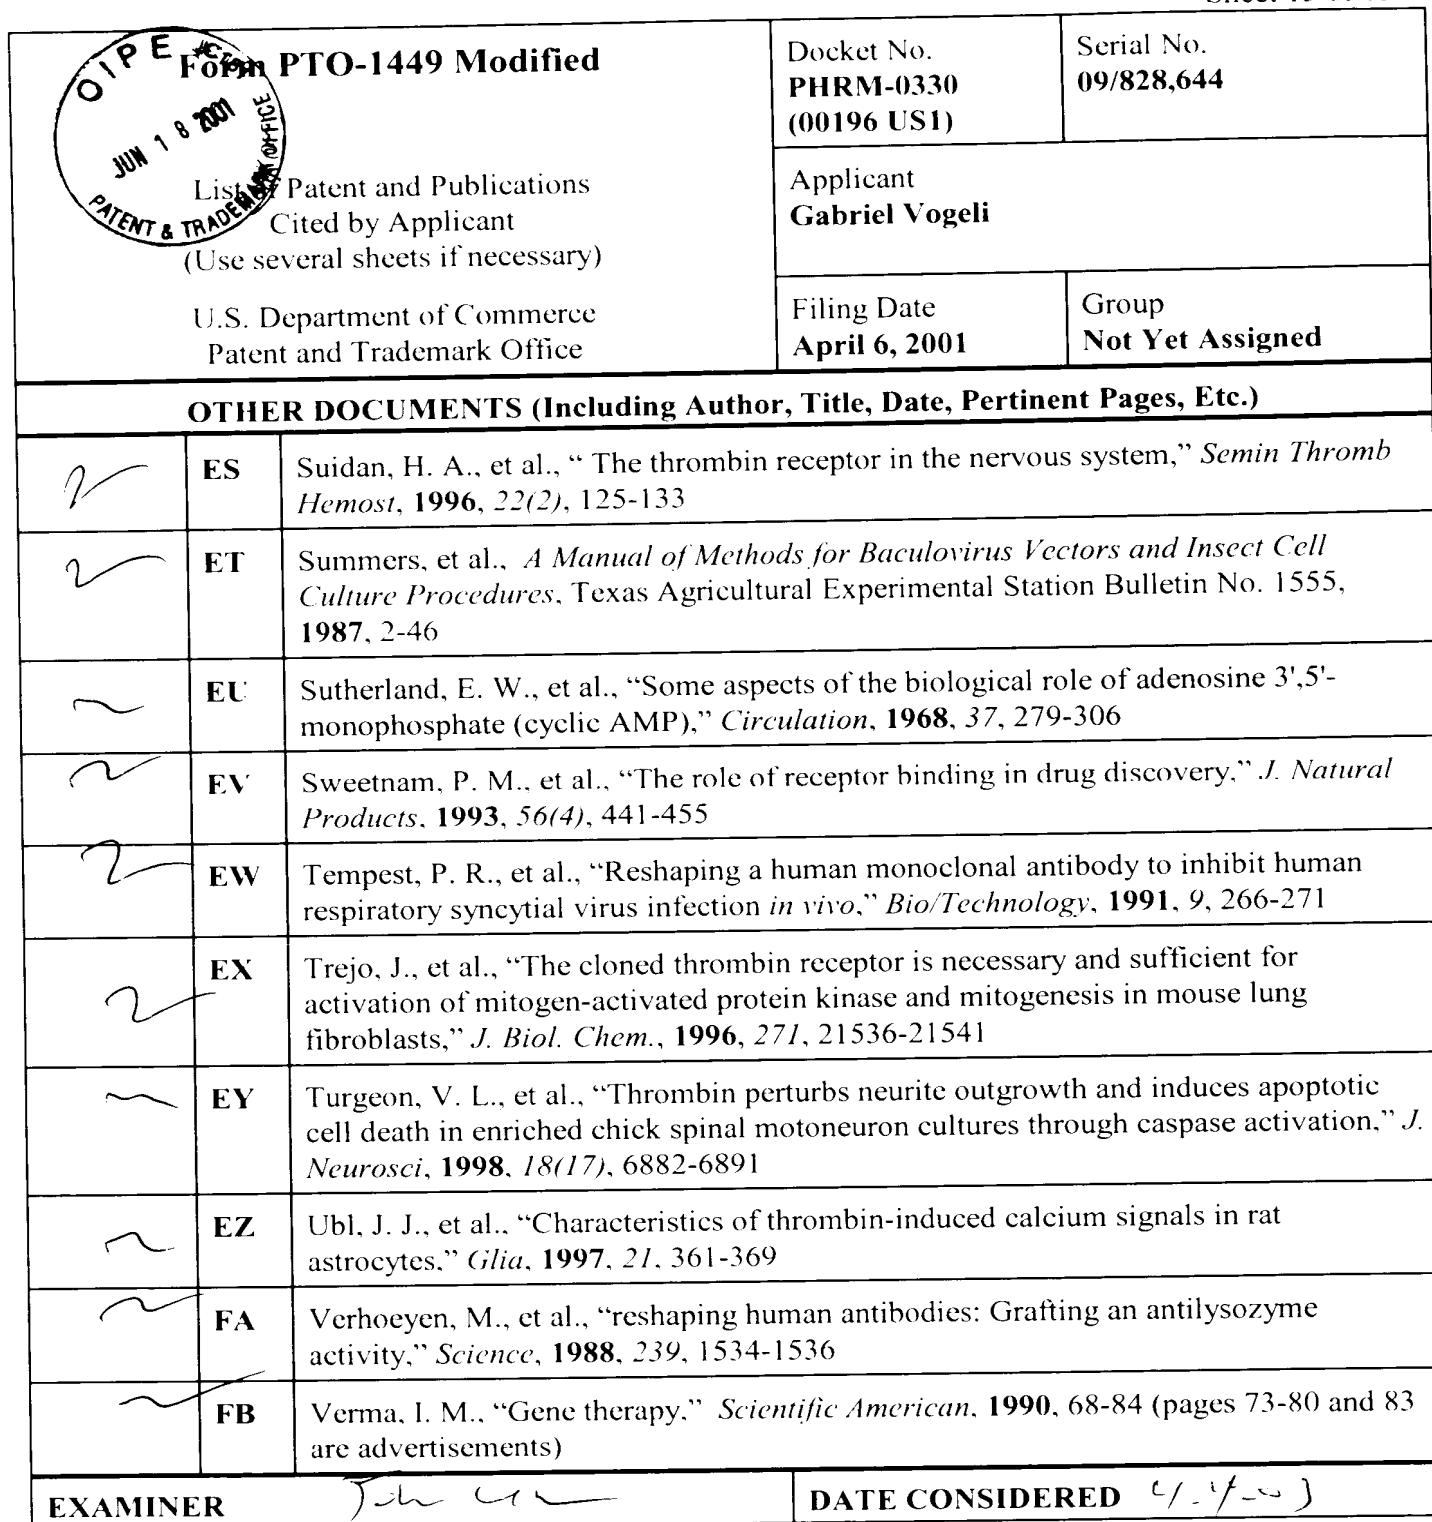 OIPE
JUN 18 2001
PATENT & TRADEMARK OFFICE
Form PTO-1449 Modified
List of Patent and Publications
Cited by Applicant
(Use several sheets if necessary)
U.S. Department of Commerce
Patent and Trademark Office
Docket No.
PHRM-0330
(00196 US1)
Serial No.
09/828,644
Applicant
Gabriel Vogeli
Filing Date
April 6, 2001
Group
Not Yet Assigned
OTHER DOCUMENTS (Including Author, Title, Date, Pertinent Pages, Etc.)
ES Suidan, H. A., et al., “ The thrombin receptor in the nervous system,” Semin Thromb
Hemost, 1996, 22(2), 125-133
ET Summers, et al., A Manual of Methods for Baculovirus Vectors and Insect Cell
Culture Procedures, Texas Agricultural Experimental Station Bulletin No. 1555,
1987, 2-46
EU Sutherland, E. W., et al., “Some aspects of the biological role of adenosine 3',5'-
monophosphate (cyclic AMP),” Circulation, 1968, 37, 279-306
EV Sweetnam, P. M., et al., “The role of receptor binding in drug discovery,” J. Natural
Products, 1993, 56(4), 441-455
EW Tempest, P. R., et al., “Reshaping a human monoclonal antibody to inhibit human
respiratory syncytial virus infection in vivo,” Bio/Technology, 1991, 9, 266-271
EX Trejo, J., et al., “The cloned thrombin receptor is necessary and sufficient for
activation of mitogen-activated protein kinase and mitogenesis in mouse lung
fibroblasts,” J. Biol. Chem., 1996, 271, 21536-21541
EY Turgeon, V. L., et al., “Thrombin perturbs neurite outgrowth and induces apoptotic
cell death in enriched chick spinal motoneuron cultures through caspase activation,” J.
Neurosci, 1998, 18(17), 6882-6891
EZ Ubl, J. J., et al., “Characteristics of thrombin-induced calcium signals in rat
astrocytes,” Glia, 1997, 21, 361-369
FA Verhoeyen, M., et al., “reshaping human antibodies: Grafting an antilysozyme
activity,” Science, 1988, 239, 1534-1536
FB Verma, I. M., “Gene therapy,” Scientific American, 1990, 68-84 (pages 73-80 and 83
are advertisements)
EXAMINER
DATE CONSIDERED